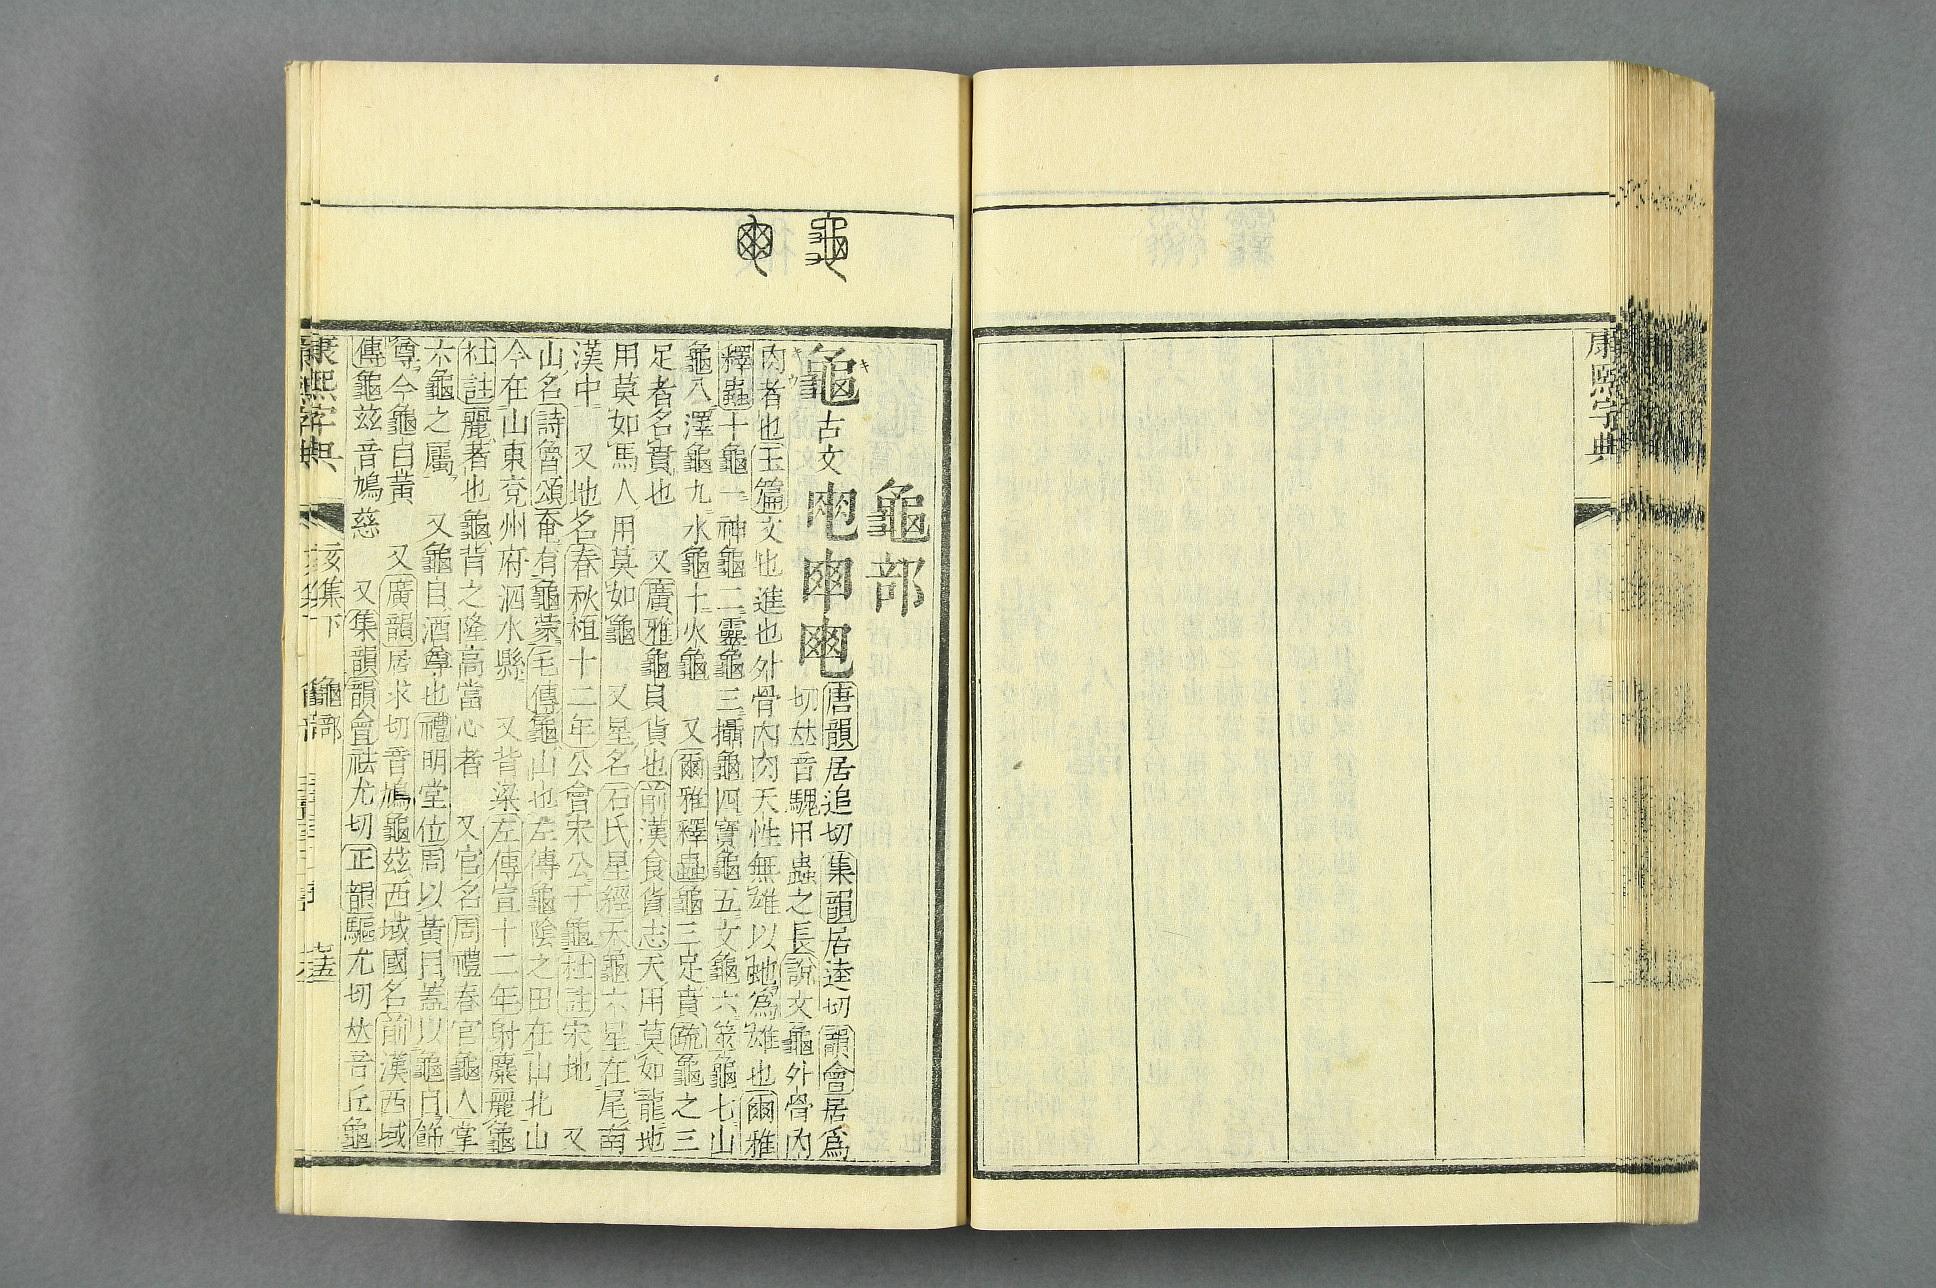 康熙字典
龜部
龜古文𠁴𤕣𪚾唐韻居追切集韻居逵切韻會居爲
切𠀤音騩甲蟲之長說文龜外骨內
肉者也玉篇文也進也外骨內肉天性無雄以𧉮爲雄也爾雅
釋蟲十龜一神龜二靈龜三攝龜四寶龜五文龜六筮龜七山
龜八澤龜九水龜十火龜 又爾雅釋蟲龜三足賁疏龜之三
足者名賁也 又廣雅龜貝貨也前漢食貨志天用莫如龍地
用莫如馬人用莫如龜 又星名石氏星經天龜六星在尾南
漢中 又地名春秋桓十二年公會宋公于龜杜註宋地 又
山名詩魯頌奄有龜蒙毛傳龜山也左傳龜陰之田在山北山
今在山東兗州府泗水縣 又背梁左傳宣十二年射麋麗龜
杜註麗著也龜背之隆高當心者 又官名周禮春官龜人掌
六龜之屬 又龜目酒尊也禮明堂位周以黃目蓋以龜目飾
尊今龜白黃 又廣韻居求切音鳩龜茲西域國名前漢西域
傳龜茲音鳩慈 又集韻韻會祛尤切正韻驅尤切𠀤音丘龜
康熙字典 亥集下 龜部